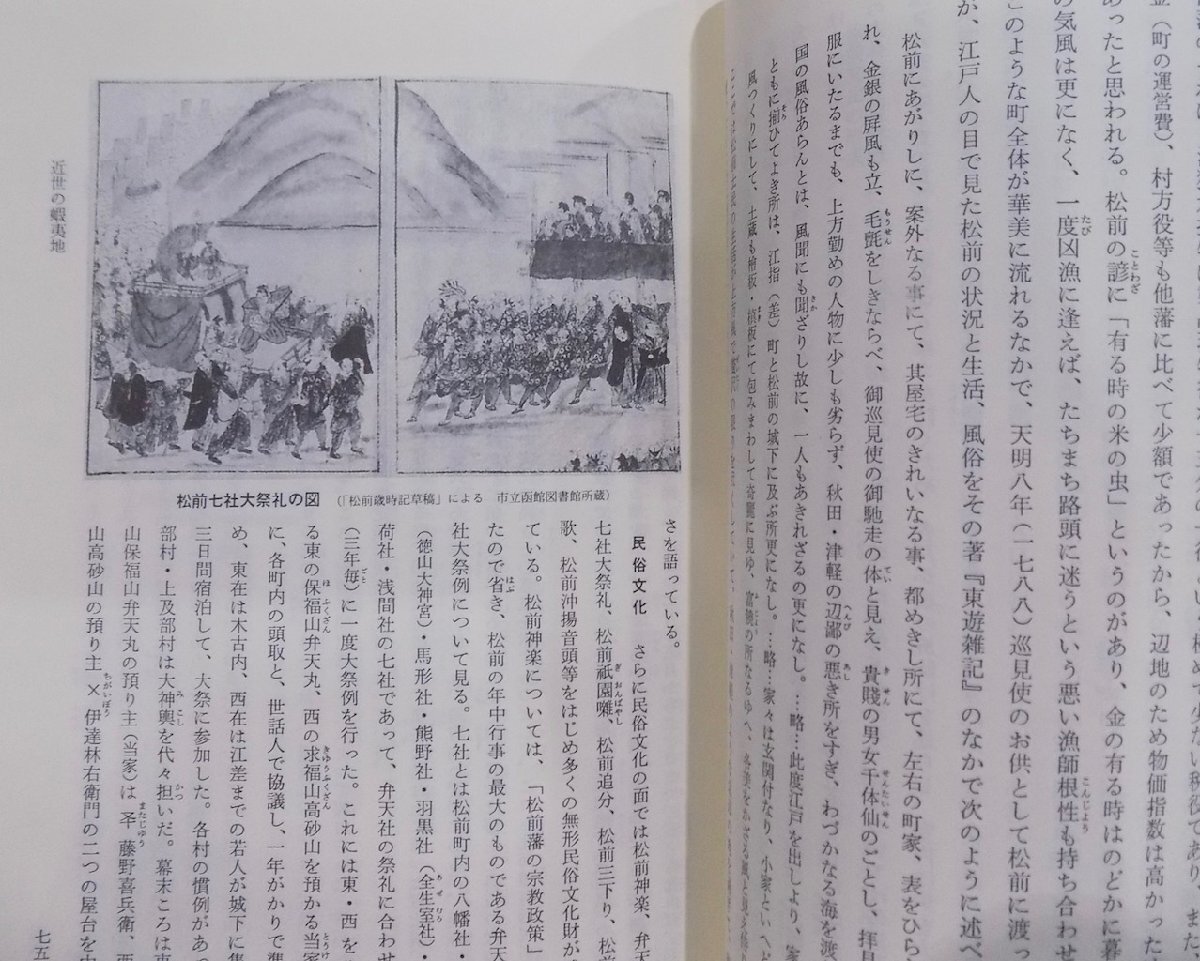 金（町の運営費）、村方役等も他藩に比べて少額であったから、辺地のため物価指数は高かった
あったと思われる。松前の諺に「有る時の米の虫」というのがあり、金の有る時はのどかに暮
の気風は更になく、一度凶漁に逢えば、たちまち路頭に迷うという悪い漁師根性も持ち合わせ
のような町全体が華美に流れるなかで、天明八年（一七八八）巡見使のお供として松前に渡っ
が、江戸人の目で見た松前の状況と生活、風俗をその著『東遊雑記』のなかで次のように述べ
松前にあがりしに、案外なる事にて、其屋宅のきれいなる事、都めきし所にて、左右の町家、表をひら
れ、金銀の屏風も立、毛氈をしきならべ、御巡見使の御馳走の体と見え、貴賤の男女千体仙のごとし、拝見
服にいたるまでも、上方勤めの人物に少しも劣らず、秋田・津軽の辺鄙の悪き所をすぎ、わづかなる海を渡
国の風俗あらんとは、風聞にも聞ざりし故に、一人もあきれざるの更になし。…略…此度江戸を出しより、家
ともに揃ひてよき所は、江指（差）町と松前の城下に及ぶ所更になし。…略…家々は玄関付なり、小家といへ
風つくりにして、土蔵も檜板・槙板にて包みまわして奇麗に見ゆ、
松前七社大祭礼の図（「松前歳時記草稿」による　市立函館図書館所蔵）
さを語っている。
民俗文化　さらに民俗文化の面では松前神楽、弁天
七社大祭礼、松前祇園囃、松前追分、松前三下り、松前
歌、松前沖揚音頭等をはじめ多くの無形民俗文化財が
ている。松前神楽については、「松前藩の宗教政策」
たので省き、松前の年中行事の最大のものである弁天
社大祭例について見る。七社とは松前町内の八幡社・
（徳山大神宮）・馬形社・熊野社・羽黒社（全生室社）・
荷社・浅間社の七社であって、弁天社の祭礼に合わせ
（三年毎）に一度大祭例を行った。これには東・西を
る東の保福山弁天丸、西の求福山高砂山を預かる当家
に、各町内の頭取と、世話人で協議し、一年がかりで準
め、東在は木古内、西在は江差までの若人が城下に集
三日間宿泊して、大祭に参加した。各村の慣例があっ
部村・上及部村は大神輿を代々担いだ。幕末ころは東
山保福山弁天丸の預り主（当家）は
藤野喜兵衛、西
山高砂山の預り主
伊達林右衛門の二つの屋台を中
近世の蝦夷地
七五